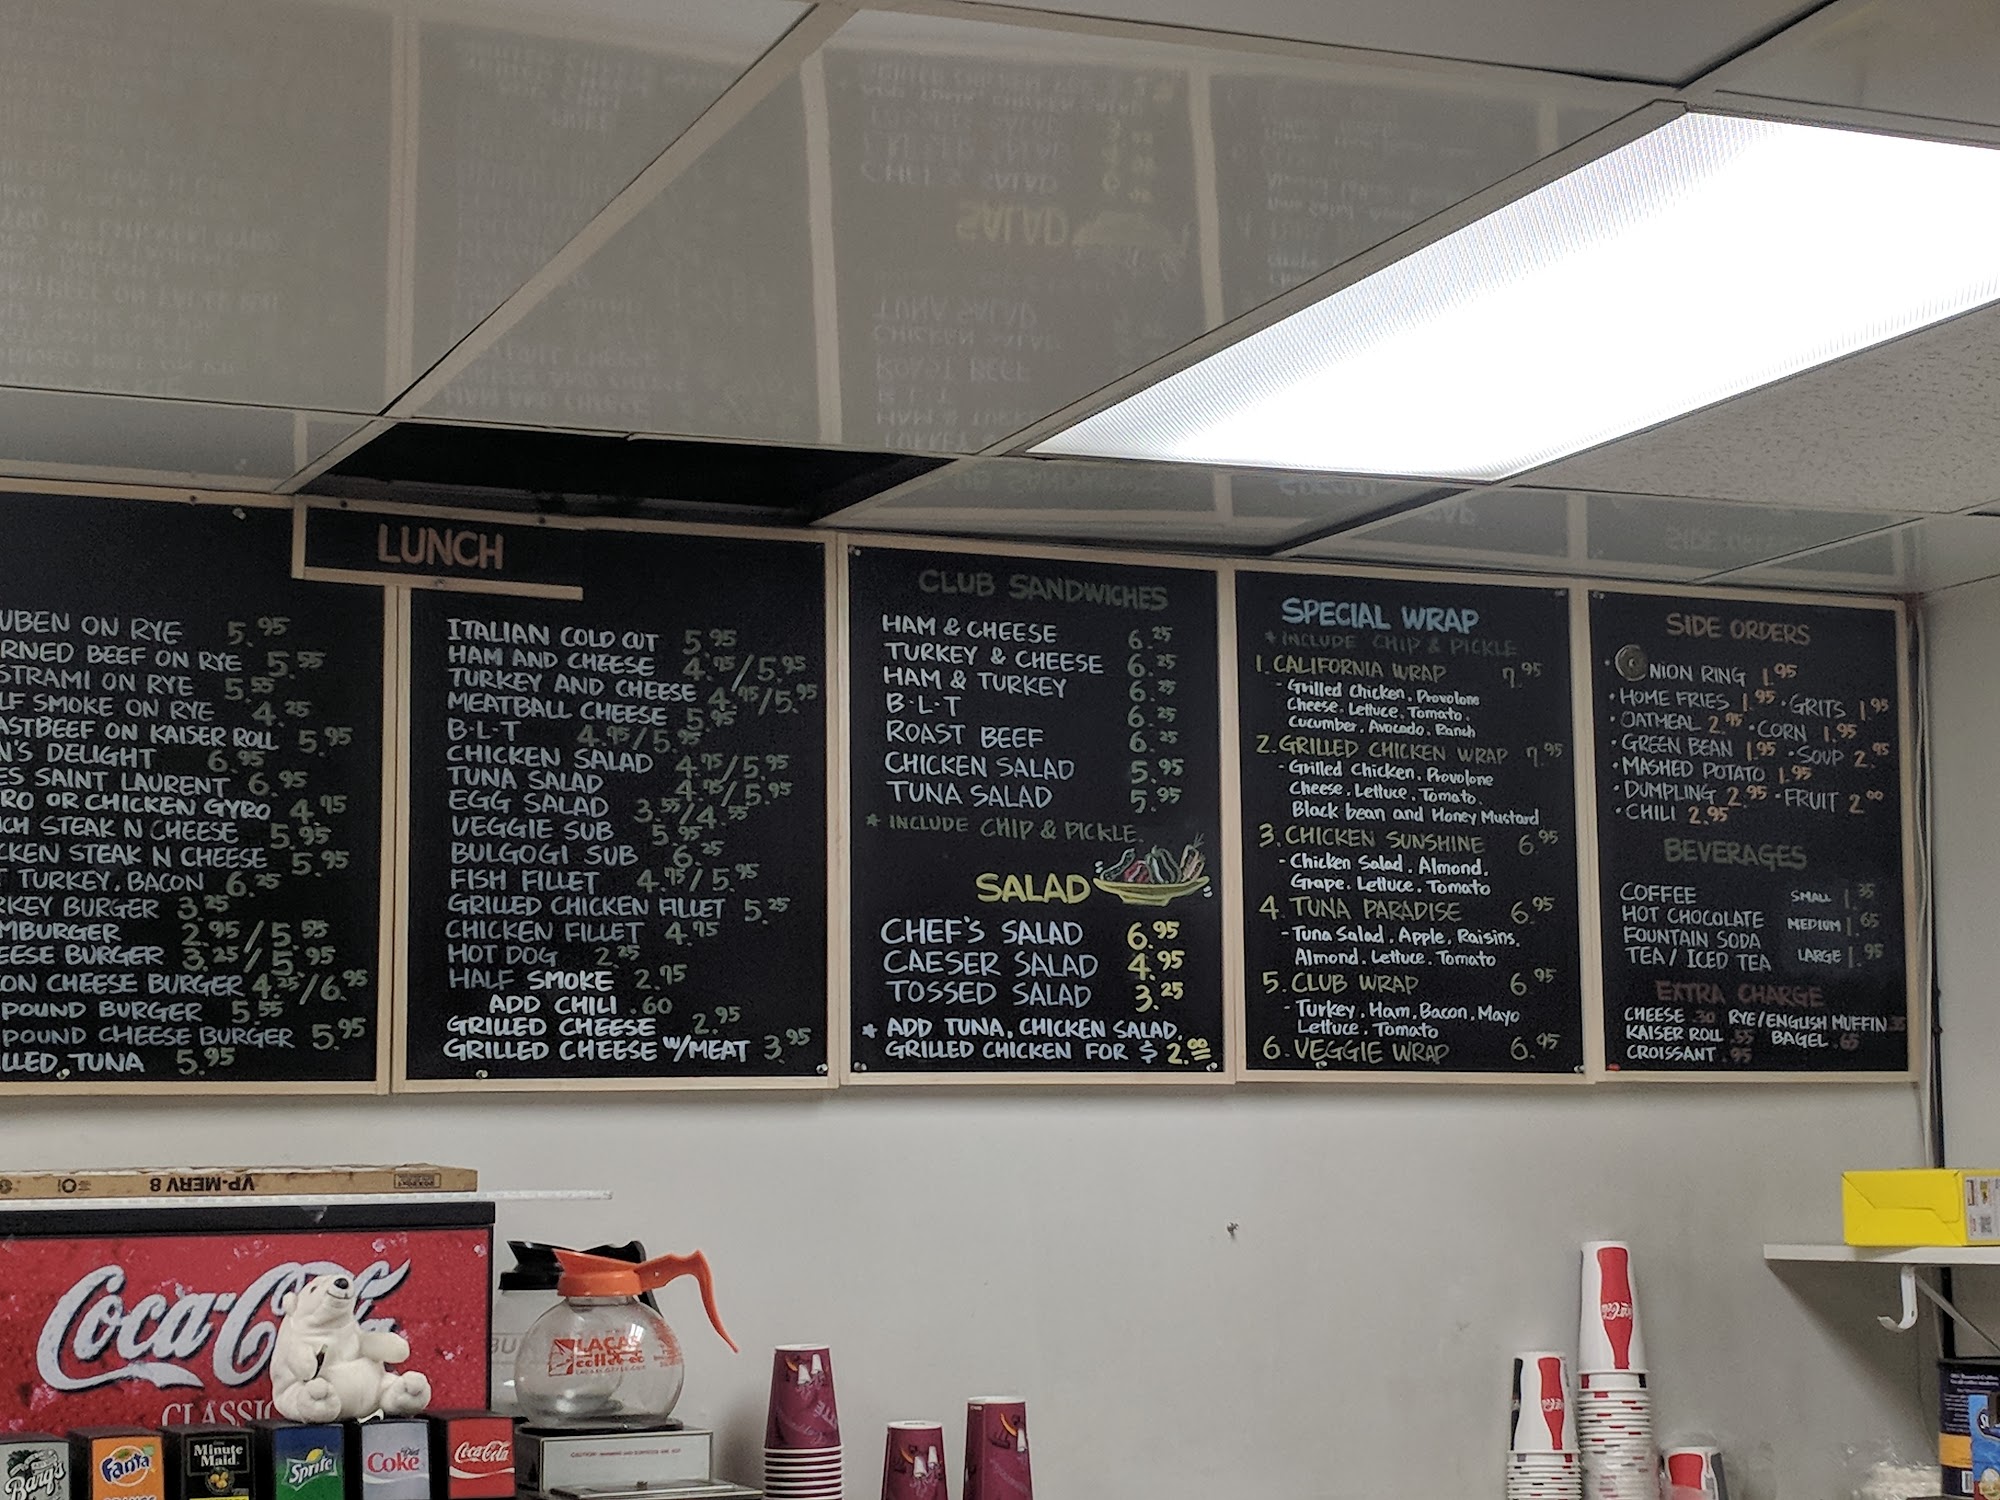 LUNCH
UBEN ON RYE 5.95
RNED BEEF ON RYE 5.55
STRAMI ON RYE 5.55
LF SMOKE ON RYE 4.25
ASTBEEF ON KAISER ROLL 5.95
N'S DELIGHT 6.95
ES SAINT LAURENT 6.95
RO OR CHICKEN GYRO 4.75
CH STEAK N CHEESE 5.95
CKEN STEAK N CHEESE 5.95
T TURKEY, BACON 6.25
RKEY BURGER 3.25
MBURGER 2.95/5.55
EESE BURGER 3.25/5.95
ON CHEESE BURGER 4.25/6.95
POUND BURGER 5.55
POUND CHEESE BURGER 5.95
LLED TUNA 5.95
ITALIAN COLD CUT 5.95
HAM AND CHEESE 4.75/5.95
TURKEY AND CHEESE 4.75/5.95
MEATBALL CHEESE 5.95
B·L·T 4.75/5.95
CHICKEN SALAD 4.75/5.95
TUNA SALAD 4.75/5.95
EGG SALAD 3.55/4.55
VEGGIE SUB 5.95
BULGOGI SUB 6.25
FISH FILLET 4.75/5.95
GRILLED CHICKEN FILLET 5.25
CHICKEN FILLET 4.75
HOT DOG 2.25
HALF SMOKE 2.75
ADD CHILI .60
GRILLED CHEESE 2.95
GRILLED CHEESE W/MEAT 3.95
CLUB SANDWICHES
HAM & CHEESE 6.25
TURKEY & CHEESE 6.25
HAM & TURKEY 6.25
B·L·T 6.25
ROAST BEEF 6.25
CHICKEN SALAD 5.95
TUNA SALAD 5.95
* INCLUDE CHIP & PICKLE.
SALAD
CHEF'S SALAD 6.95
CAESER SALAD 4.95
TOSSED SALAD 3.25
* ADD TUNA, CHICKEN SALAD,
GRILLED CHICKEN FOR $ 2.00
SPECIAL WRAP
* INCLUDE CHIP & PICKLE
1. CALIFORNIA WRAP 7.95
- Grilled Chicken, Provolone
Cheese, Lettuce, Tomato,
Cucumber, Avocado, Ranch
2. GRILLED CHICKEN WRAP 7.95
- Grilled Chicken, Provolone
Cheese, Lettuce, Tomato
Black bean and Honey Mustard
3. CHICKEN SUNSHINE 6.95
- Chicken Salad, Almond,
Grape, Lettuce, Tomato
4. TUNA PARADISE 6.95
- Tuna Salad, Apple, Raisins,
Almond, Lettuce, Tomato
5. CLUB WRAP 6.95
- Turkey, Ham, Bacon, Mayo
Lettuce, Tomato
6. VEGGIE WRAP 6.95
SIDE ORDERS
· ONION RING 1.95
· HOME FRIES 1.95 · GRITS 1.95
· OATMEAL 2.75 · CORN 1.95
· GREEN BEAN 1.95 · SOUP 2.95
· MASHED POTATO 1.95
· DUMPLING 2.95 · FRUIT 2.00
· CHILI 2.95
BEVERAGES
COFFEE SMALL 1.35
HOT CHOCOLATE MEDIUM 1.65
FOUNTAIN SODA
TEA / ICED TEA LARGE 1.95
EXTRA CHARGE
CHEESE .30 RYE/ENGLISH MUFFIN .35
KAISER ROLL .55 BAGEL .65
CROISSANT .95
VP-MERV 8
Coca-Cola
CLASSIC
LACAS
coffee co
Barq's
Fanta
Minute Maid
Sprite
Diet Coke
Coca-Cola